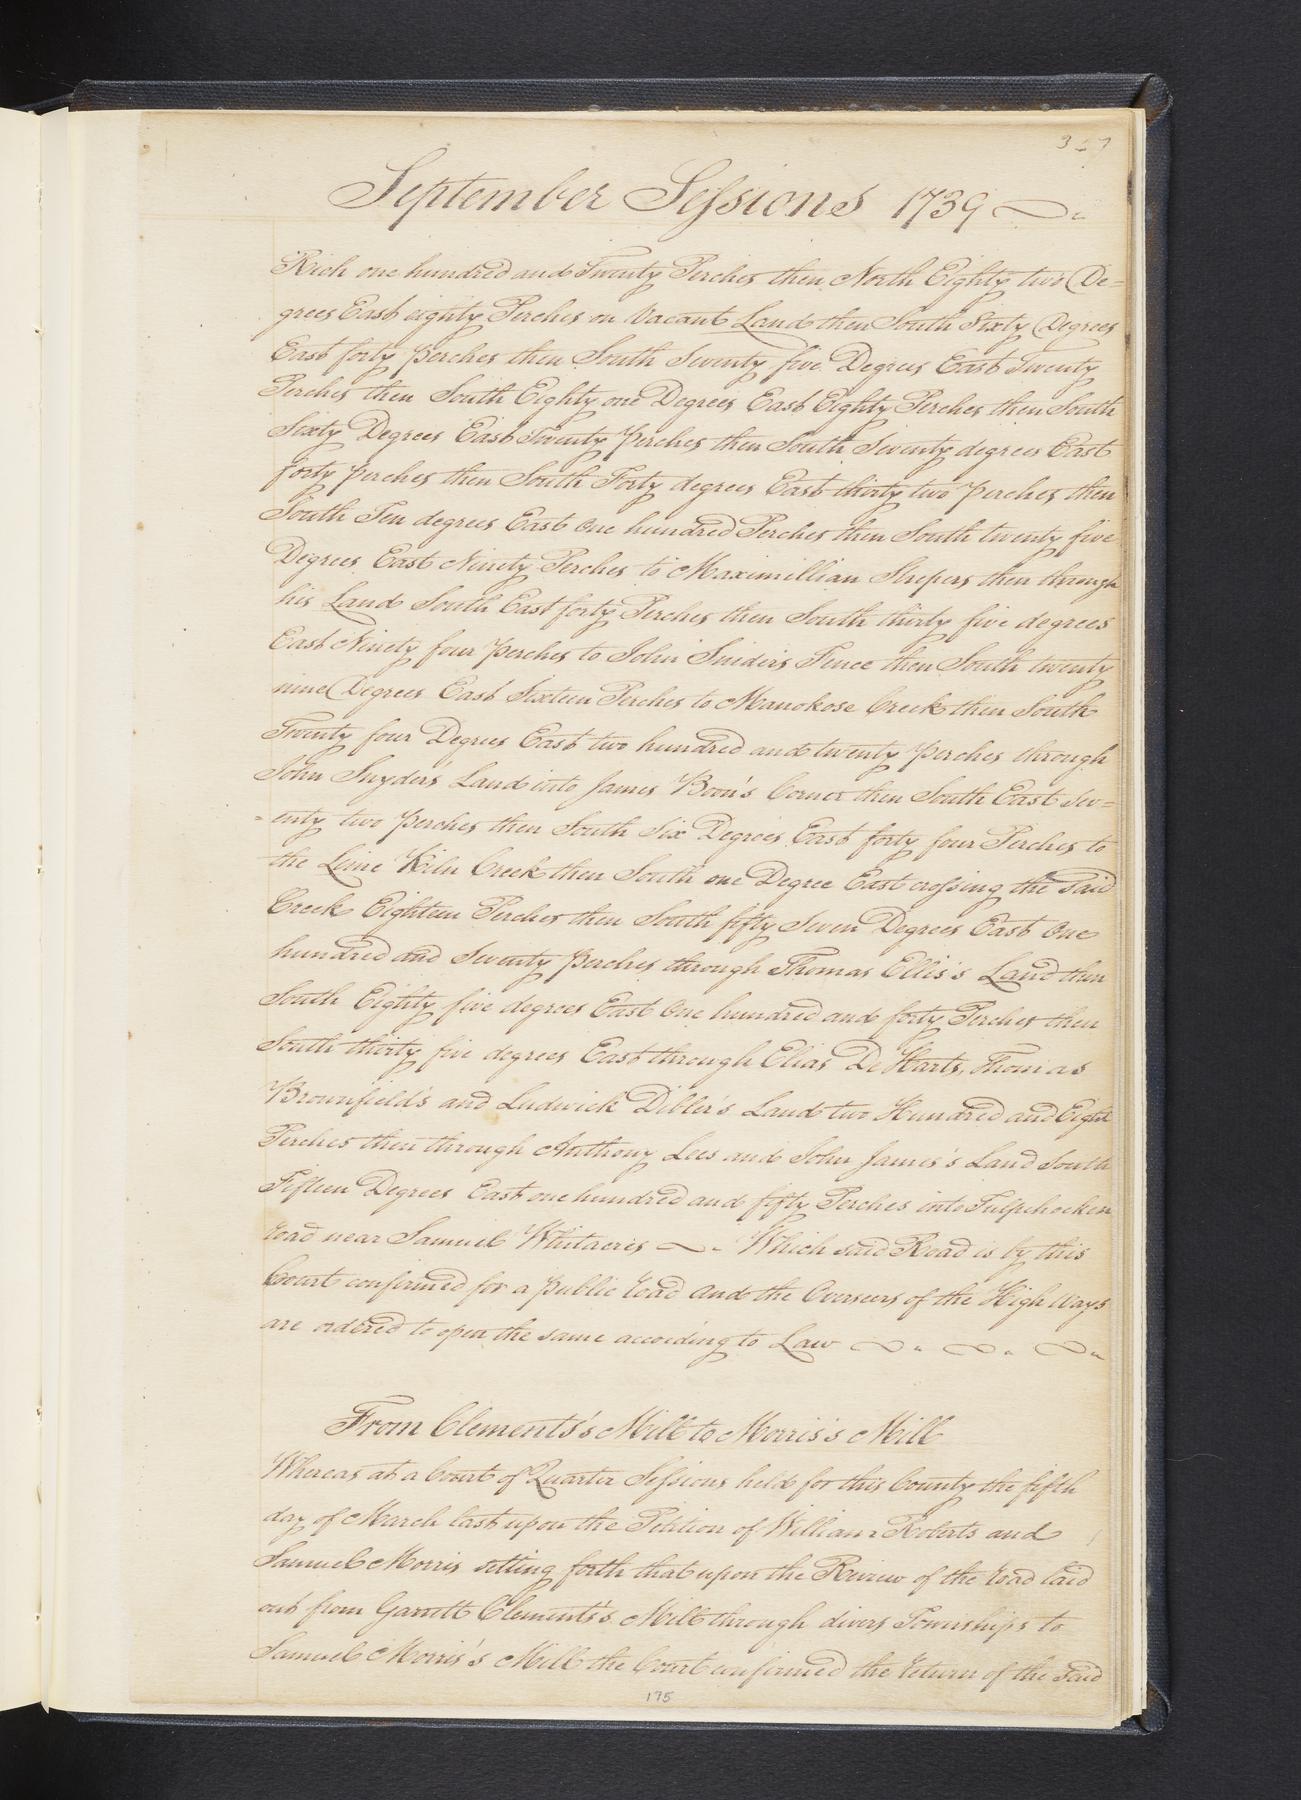 347
September Sessions 1739
Rich one hundred and Twenty Perches then North Eighty two De=
grees East eighty Perches on Vacant Land then South Sixty Degrees
East forty perches then South Seventy five Degrees East Twenty
Perches then South Eighty one Degrees East Eighty Perches then South
Sixty Degrees East Twenty Perches then South Seventy degrees East
forty perches then South Forty degrees East thirty two Perches then
South Ten degrees East One hundred Perches then South twenty five
Degrees East Ninety Perches to Maximillian Strepers then through
his Land South East forty Perches then South thirty five degrees
East Ninety four perches to John Sniders Fence then South twenty
nine Degrees East Sixteen Perches to Manokose Creek then South
Twenty four Degrees East two hundred and twenty perches through
John Snyder's Land into James Boon's Corner then South East Sev=
=enty two perches then South Six Degrees East forty four Perches to
the Lime Kiln Creek then South one Degree East crossing the Said
Creek Eighteen Perches then South fifty Seven Degrees East One
hundred and Seventy perches through Thomas Ellis's Land then
South Eighty five degrees East One hundred and forty Perches then
South thirty five degrees East through Elias De Harts, Thomas
Brownfield's and Ludwick Dibler's Land two Hundred and Eight
Perches then through Anthony Lees and John James's Land South
Fifteen Degrees East one hundred and fifty Perches into Tulpehocken
road near Samuel Whitacres Which said Road is by this
Court confirmed for a public road And the Overseers of the High Ways
are ordered to open the same according to Law
From Clements's Mill to Morris's Mill
Whereas at a Court of Quarter Sessions held for this County the fifth
day of March last upon the Petition of William Roberts and
Samuel Morris setting forth that upon the Review of the road laid
out from Garrett Clements's Mill through divers Townships to
Samuel Morris's Mill the Court confirmed the return of the said
175